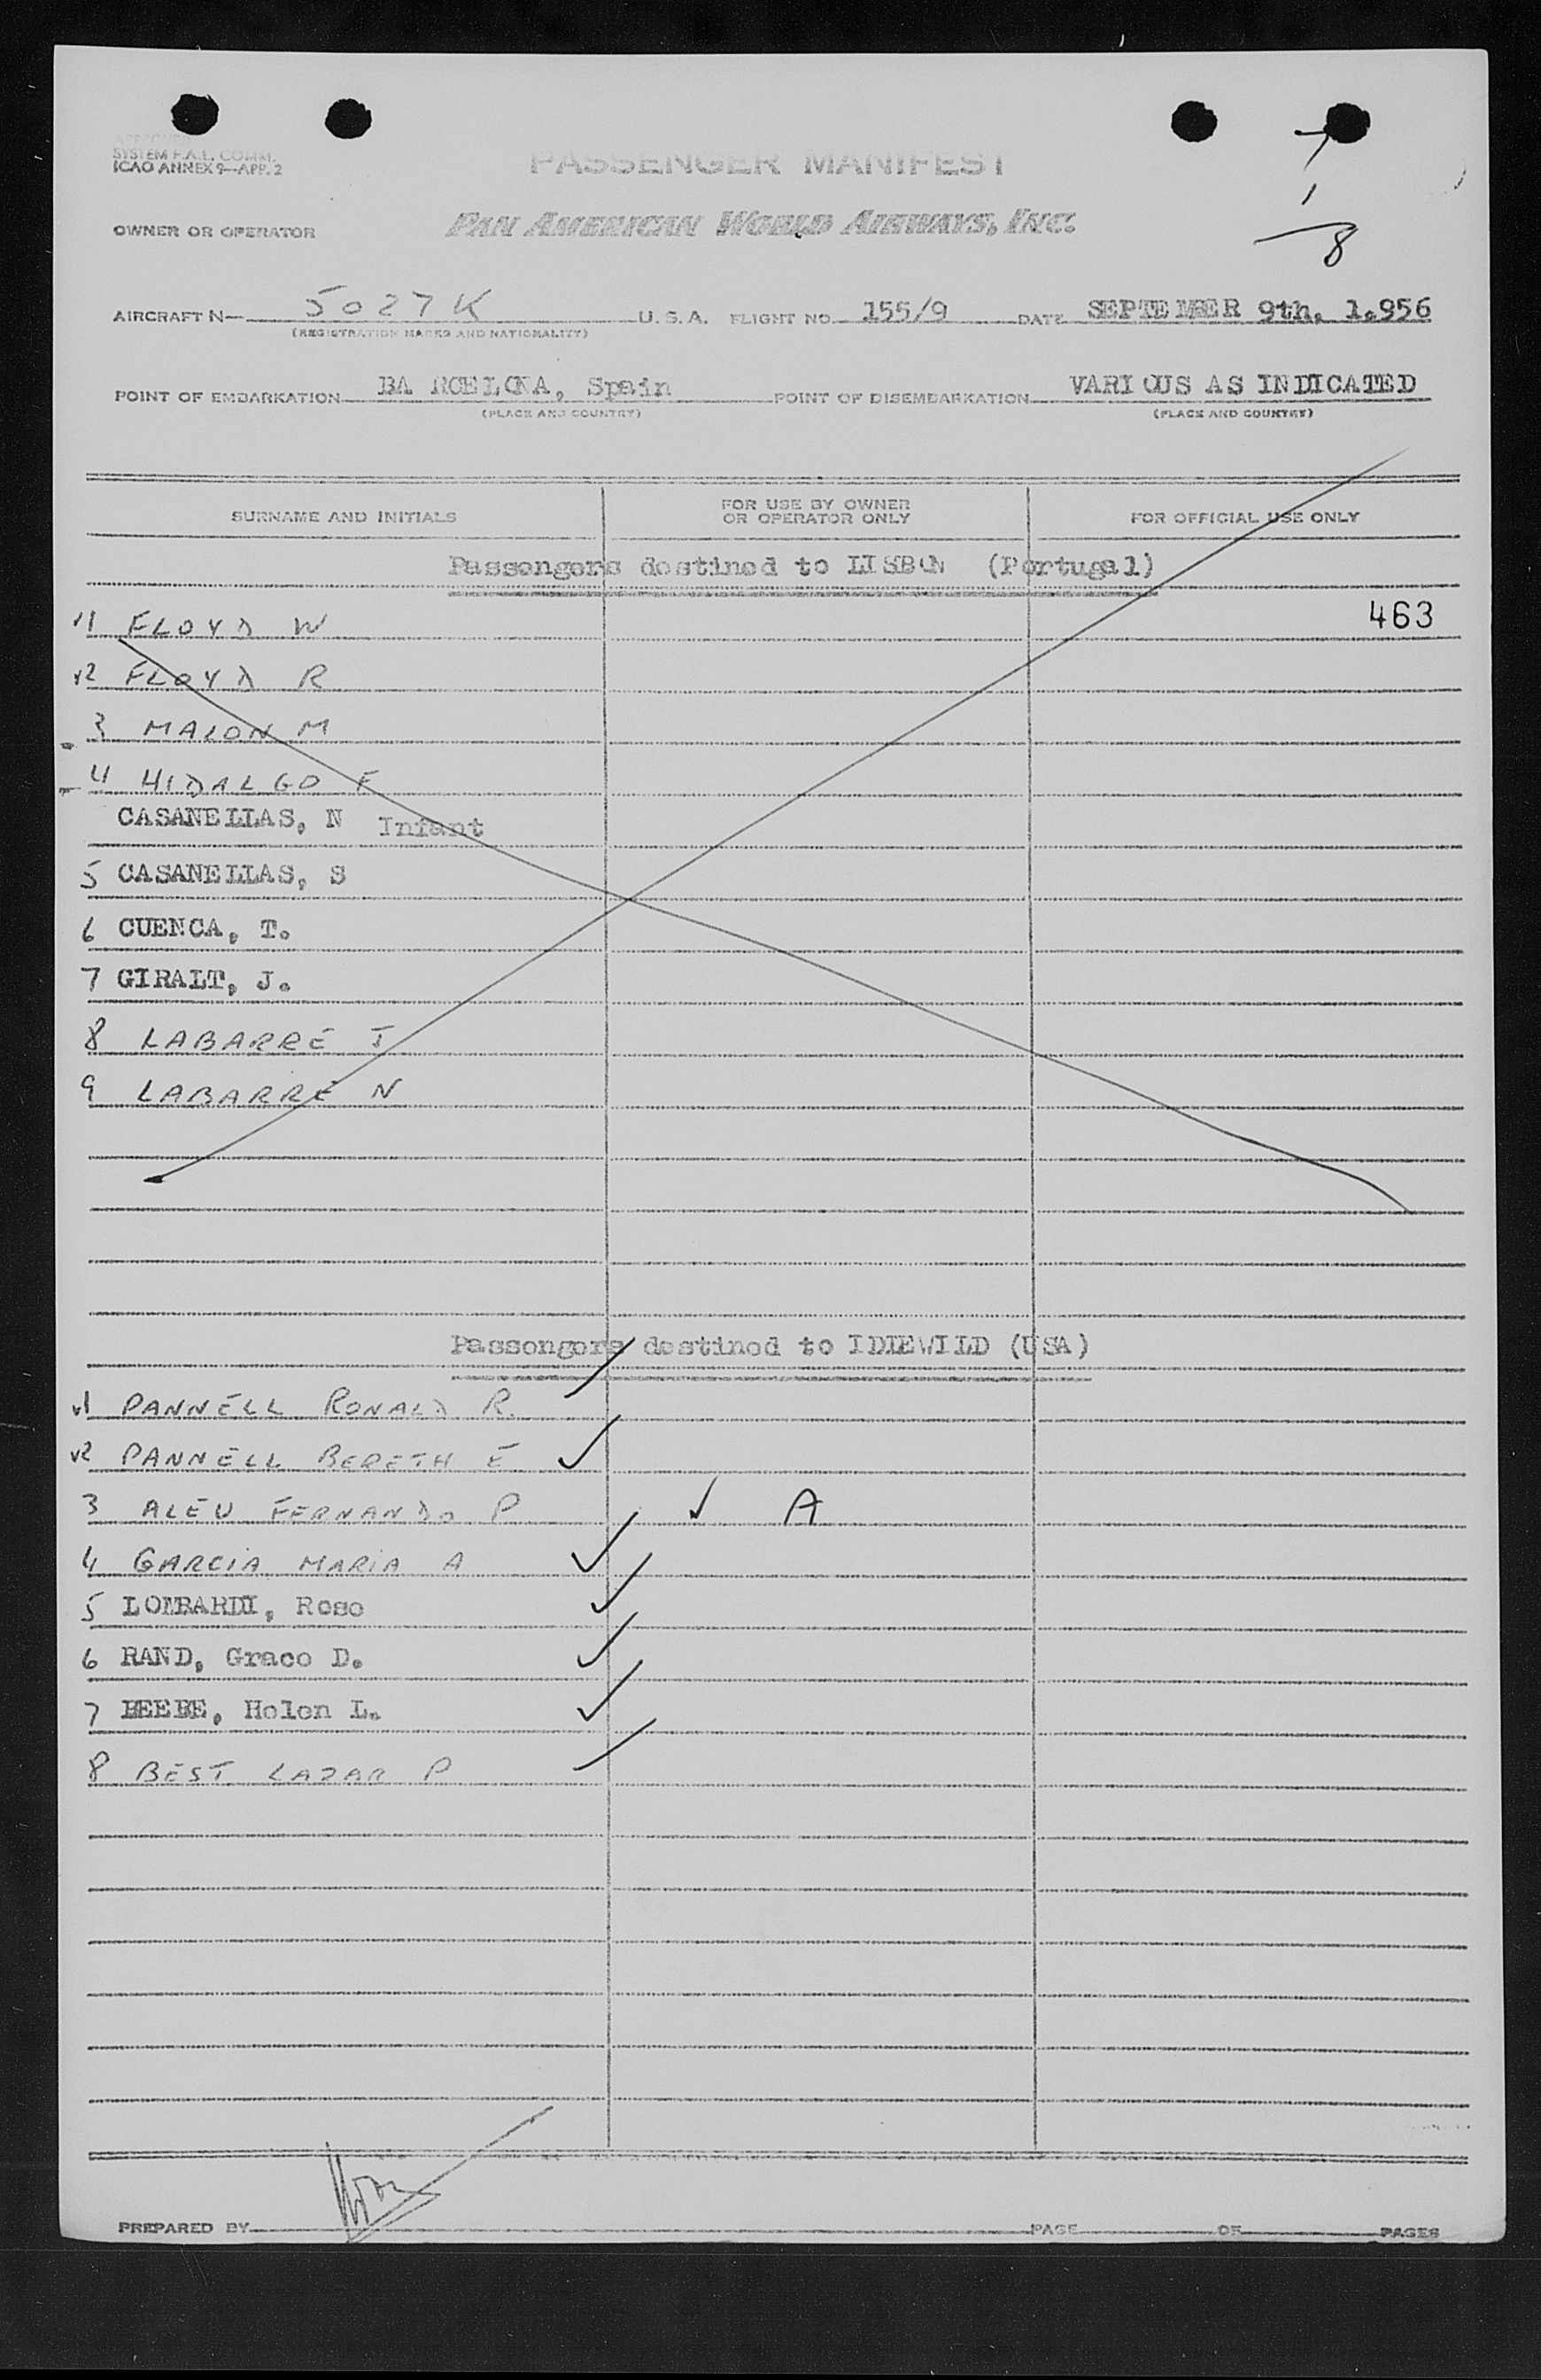 SYSTEM F.A.L. COMM.
ICAO ANNEX 9—APP. 2
PASSENGER MANIFEST
OWNER OR OPERATOR PAN AMERICAN WORLD AIRWAYS, INC.
1
8
AIRCRAFT N— 5027K U. S. A. FLIGHT NO. 155/9 DATE SEPTEMBER 9th. 1.956
(REGISTRATION MARKS AND NATIONALITY)
POINT OF EMBARKATION BARCELONA, Spain POINT OF DISEMBARKATION VARIOUS AS INDICATED
(PLACE AND COUNTRY) (PLACE AND COUNTRY)
SURNAME AND INITIALS FOR USE BY OWNER OR OPERATOR ONLY FOR OFFICIAL USE ONLY
Passengers destined to LISBON (Portugal)
1 FLOYD W 463
2 FLOYD R
3 MALON M
4 HIDALGO F
CASANELLAS, N Infant
5 CASANELLAS, S
6 CUENCA, T.
7 GIRALT, J.
8 LABARRE J
9 LABARRE N
Passengers destined to IDLEWILD (USA)
1 PANNELL RONALD R.
2 PANNELL BERETH E ✓
3 ALEU FERNANDO P ✓ A
4 GARCIA MARIA A ✓
5 LOMBARDI, Rose ✓
6 RAND, Grace D. ✓
7 BEEBE, Helen L. ✓
8 BEST LAZAR P
PREPARED BY PAGE OF PAGES